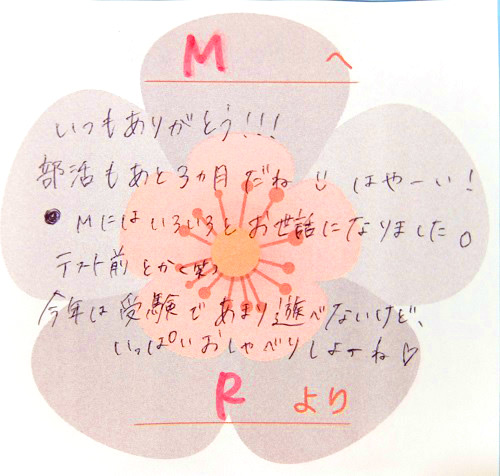 M へ
いつもありがとう!!!
部活もあと3ヵ月だね はやーい!
● Mにはいろいろとお世話になりました。
テスト前とかく笑>
今年は受験であまり遊べないけど、
いっぱいおしゃべりしよーね♡
R より